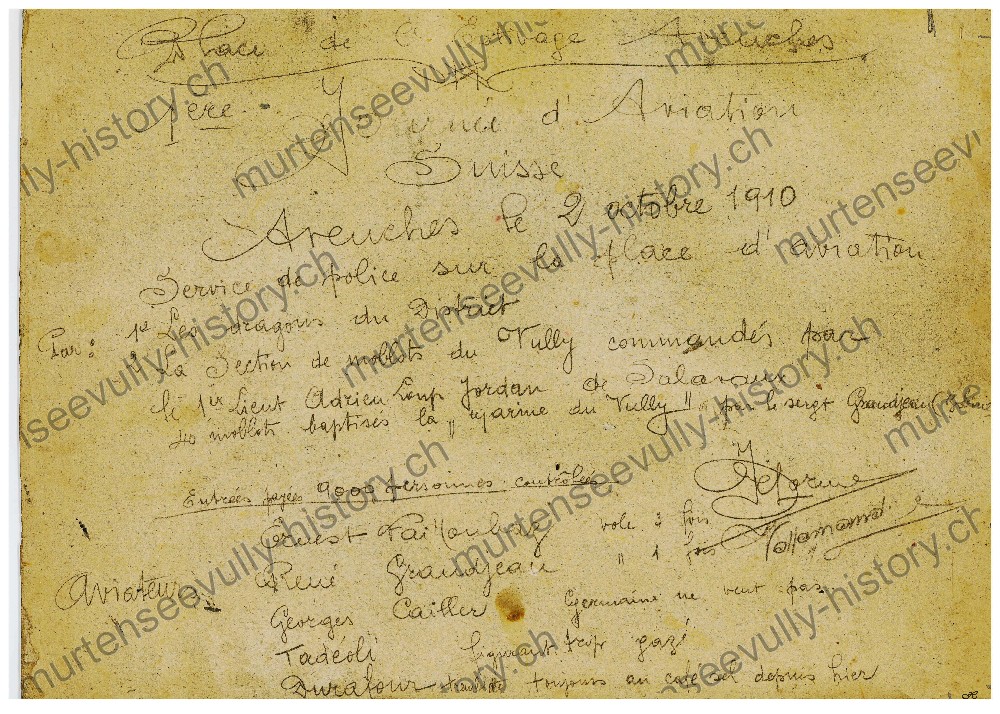 Place de l' Avenches
1ère Journée d'Aviation
Suisse
Avenches le 2 octobre 1910
Service de police sur la place d'aviation
Par: 1° Les dragons du District
La Section de moblots du Vully commandés par
le 1er Lieut Adrien Loup Jordan de Salavaux
40 moblots baptisés la „ du Vully" par le sergt Grandjean
Entrées payées 9000 personnes contrôlées
Ernest Failloubaz vole 2 fois
Aviateurs René Grandjean „ 1 fois
Georges Cailler Germaine ne veut pas
Tadéoli trop gazé
Durafour toujours au depuis hier
murtenseevully-history.ch
murtenseevully-history.ch
murtenseevully-history.ch
murtenseevully-history.ch
murtenseevully-history.ch
murtenseevully-history.ch